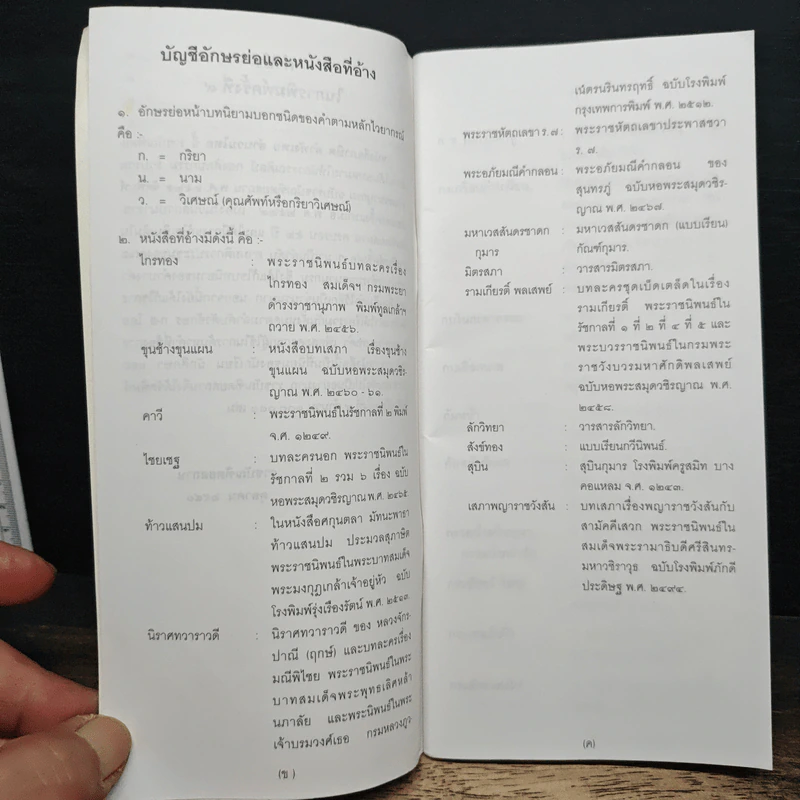 บัญชีอักษรย่อและหนังสือที่อ้าง
๑. อักษรย่อหน้าบทนิยามบอกชนิดของคำตามหลักไวยากรณ์
คือ :-
ก. = กริยา
น. = นาม
ว. = วิเศษณ์ (คุณศัพท์หรือกริยาวิเศษณ์)
๒. หนังสือที่อ้างมีดังนี้ คือ :-
ไกรทอง : พระราชนิพนธ์บทละครเรื่อง
ไกรทอง สมเด็จฯ กรมพระยา
ดำรงราชานุภาพ พิมพ์ทูลเกล้าฯ
ถวาย พ.ศ. ๒๔๕๖.
ขุนช้างขุนแผน : หนังสือบทเสภา เรื่องขุนช้าง
ขุนแผน ฉบับหอพระสมุดวชิร-
ญาณ พ.ศ. ๒๔๖๐ - ๖๑.
คาวี : พระราชนิพนธ์ในรัชกาลที่ ๒ พิมพ์
จ.ศ. ๑๒๔๙.
ไชยเชฐ : บทละครนอก พระราชนิพนธ์ใน
รัชกาลที่ ๒ รวม ๖ เรื่อง ฉบับ
หอพระสมุดวชิรญาณ พ.ศ. ๒๔๖๕
ท้าวแสนปม : ในหนังสือศกุนตลา มัทนะพาธา
ท้าวแสนปม ประมวลสุภาษิต
พระราชนิพนธ์ในพระบาทสมเด็จ
พระมงกุฎเกล้าเจ้าอยู่หัว ฉบับ
โรงพิมพ์รุ่งเรืองรัตน์ พ.ศ. ๒๕๑๓.
นิราศทวาราวดี : นิราศทวาราวดี ของ หลวงจักร-
ปาณี (ฤกษ์) และบทละครเรื่อง
มณีพิไชย พระราชนิพนธ์ในพระ
บาทสมเด็จพระพุทธเลิศหล้า
นภาลัย และพระนิพนธ์ในพระ
เจ้าบรมวงศ์เธอ กรมหลวงภูว-
(ข)
เน้ตรนรินทรฤทธิ์ ฉบับโรงพิมพ์
กรุงเทพการพิมพ์ พ.ศ. ๒๕๑๒.
พระราชหัตถเลขา ร. ๗ : พระราชหัตถเลขาประพาสชวา
ร. ๗.
พระอภัยมณีคำกลอน : พระอภัยมณีคำกลอน ของ
สุนทรภู่ ฉบับหอพระสมุดวชิร-
ญาณ พ.ศ. ๒๔๖๗.
มหาเวสสันดรชาดก : มหาเวสสันดรชาดก (แบบเรียน)
กุมาร กัณฑ์กุมาร.
มิตรสภา : วารสารมิตรสภา.
รามเกียรติ์ พลเสพย์ : บทละครชุดเบ็ดเตล็ดในเรื่อง
รามเกียรติ์ พระราชนิพนธ์ใน
รัชกาลที่ ๑ ที่ ๒ ที่ ๔ ที่ ๕ และ
พระบวรราชนิพนธ์ในกรมพระ
ราชวังบวรมหาศักดิพลเสพย์
ฉบับหอพระสมุดวชิรญาณ พ.ศ.
๒๔๕๘.
ลักวิทยา : วารสารลักวิทยา.
สังข์ทอง : แบบเรียนกวีนิพนธ์.
สุบิน : สุบินกุมาร โรงพิมพ์ครูสมิท บาง
คอแหลม จ.ศ. ๑๒๔๓.
เสภาพญาราชวังสัน : บทเสภาเรื่องพญาราชวังสันกับ
สามัคคีเสวก พระราชนิพนธ์ใน
สมเด็จพระรามาธิบดีศรีสินทร-
มหาวชิราวุธ ฉบับโรงพิมพ์ภักดี
ประดิษฐ พ.ศ. ๒๔๙๔.
(ค)